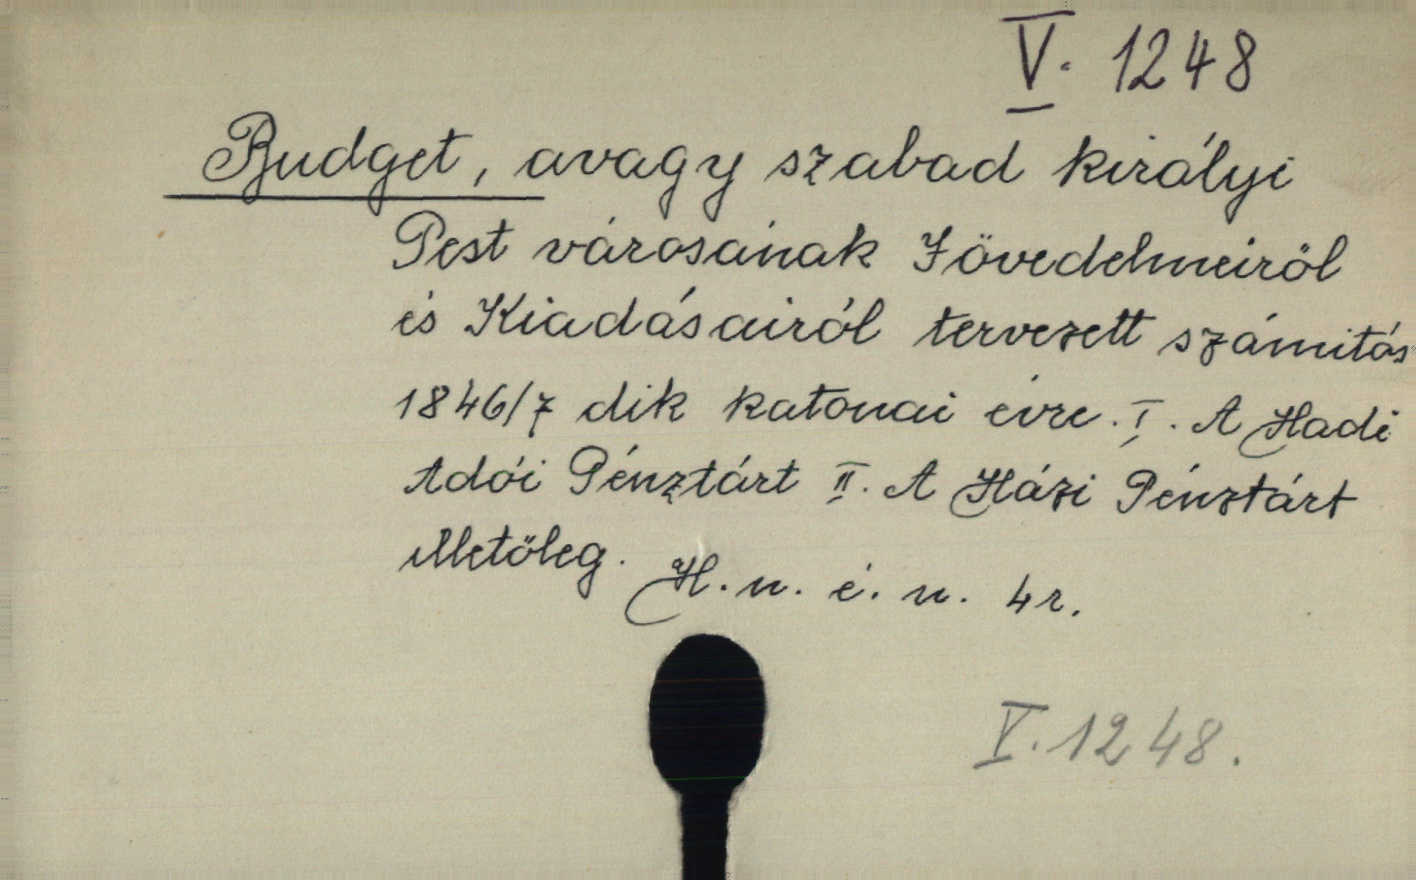 V. 1248
Budget, avagy szabad királyi
Pest városának Jövedelmeiröl
és Kiadásairól tervezett számitás
1846/7 dik katonai évre. I. A Hadi
Adói Pénztárt II. A Házi Pénztárt
illetöleg. H. n. é. n. 4r.
V. 1248.